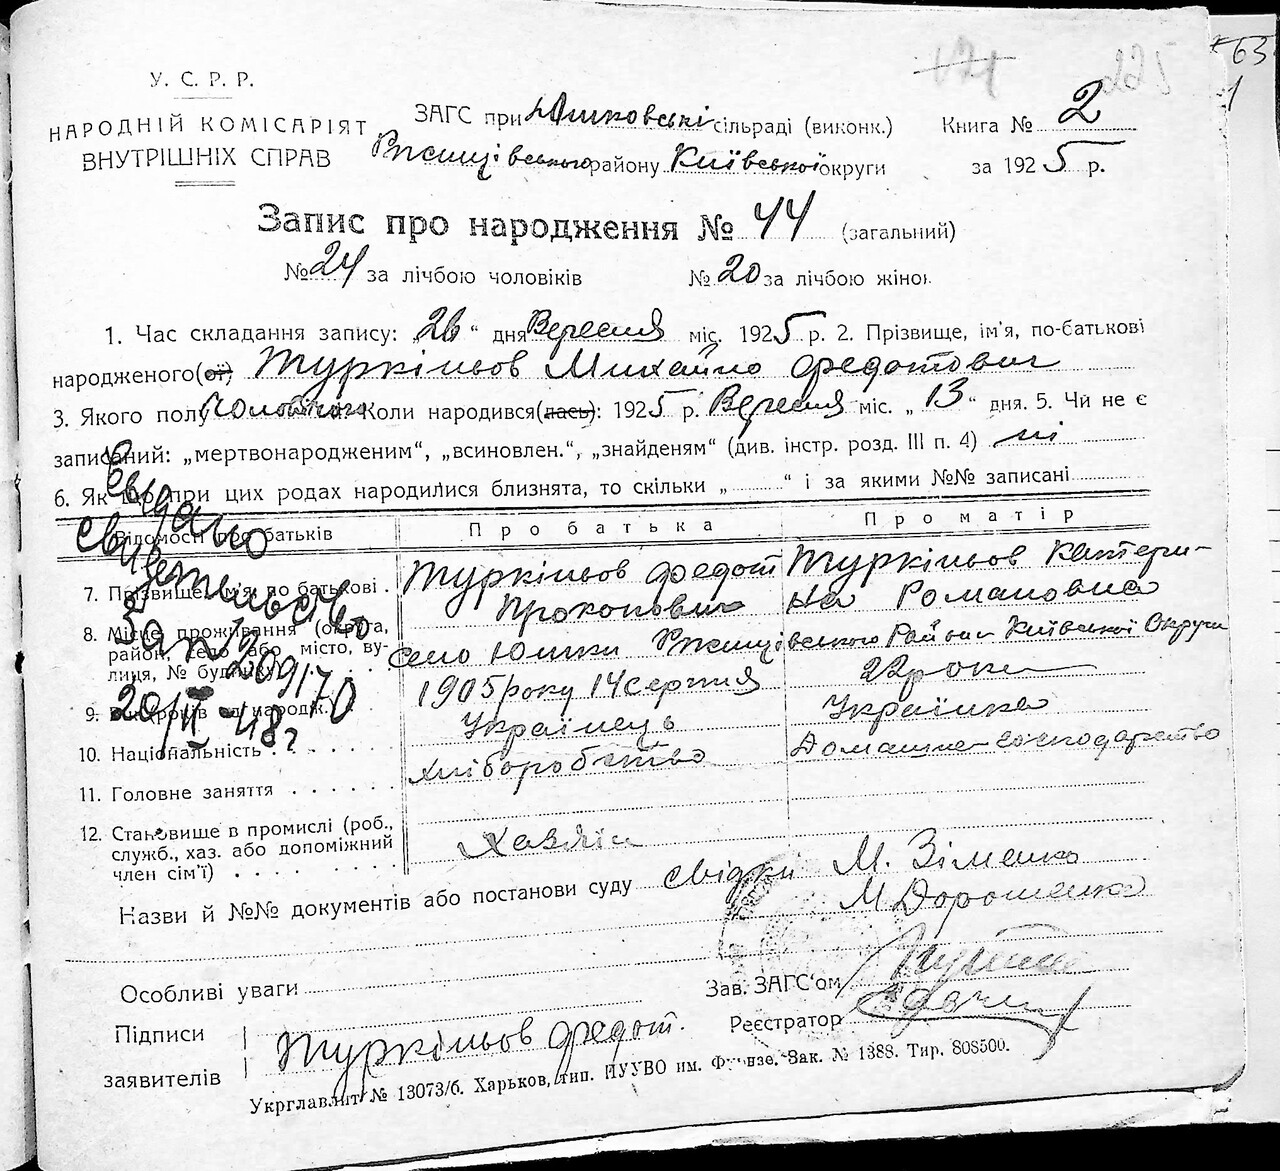 171 225
63
1
У. С. Р. Р.
НАРОДНІЙ КОМІСАРІЯТ
ВНУТРІШНІХ СПРАВ
ЗАГС при Юшковські сільраді (виконк.)
Ржищівського району Київської округи
Книга № 2
за 1925 р.
Запис про народження № 44 (загальний)
№ 24 за лічбою чоловіків № 20 за лічбою жінок
1. Час складання запису: „26“ дня Вересня міс. 1925 р. 2. Прізвище, ім’я, по-батькові
народженого(ої) Туркільов Михайло Федотович
3. Якого полу Чоловічої Коли народився(лась): 1925 р. Вересня міс. „13“ дня. 5. Чи не є
записаний: „мертвонародженим“, „всиновлен.“, „знайденям“ (див. інстр. розд. III п. 4) ні
6. Як що при цих родах народилися близнята, то скільки „ “ і за якими №№ записані
Відомості про батьків Про батька Про матір
7. Прізвище, ім’я, по батькові . Туркільов Федот Туркільов Катери-
Прокопович на Романовна
8. Місце проживання (округа,
район, село або місто, ву-
лиця, № будинку)
Село Юшки Ржищівського Району Київської Округи
9. 1905 року 14 серпня 22 роки
10. Національність . Українець Українка
11. Головне заняття Хліборобство Домашнє господарство
12. Становище в промислі (роб.,
служб., хаз. або допоміжний
член сім’ї) Хазяїн
Видано
свидетельство
за п 209170
20/II-48г
Назви й №№ документів або постанови суду свідки М. Зіменко
М Дорошенко
Особливі уваги
Зав. ЗАГС‘ом
Підписи
заявителів
Туркільов Федот.
Реєстратор
Укрглавліт № 13073/б. Харьков, тип. ПУУВО им. Фрунзе. Зак. № 1388. Тир. 808500.